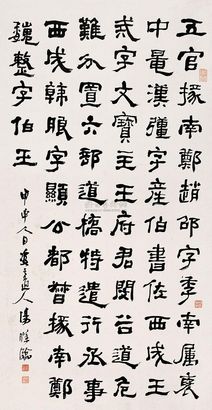 五官掾南鄭趙邵字季南屬褒
中鼂漢彊字產伯書佐西成王
戒字文寶主王府君閔谷道危
難分置六部道橋特遣行丞事
西成韓朖字顯公都督掾南鄭
魏整字伯王
甲申人日